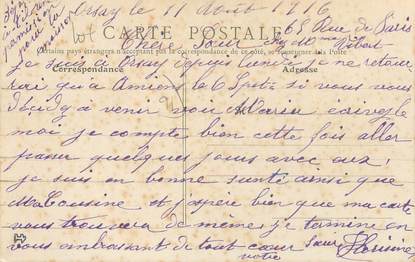 Orsay le 11 Août 1916
65 Rue de Paris
CARTE POSTALE
Chère Sœur chez Mme
Certains pays étrangers n'acceptent pas la correspondance de ce côté, se renseigner à la Poste
je suis à Orsay depuis lundi je ne retour
Correspondance Adresse
rai qu'a Amiens le 6 Septe si vous vous
à venir voir Maria écrivez le
moi je compte bien cette fois aller
passer quelques jours avec eux,
je suis en bonne santé ainsi que
Ma Cousine et j'espère bien que ma carte
vous trouvera de même, je termine en
vous embrassant de tout cœur
votre Sœur Florisine